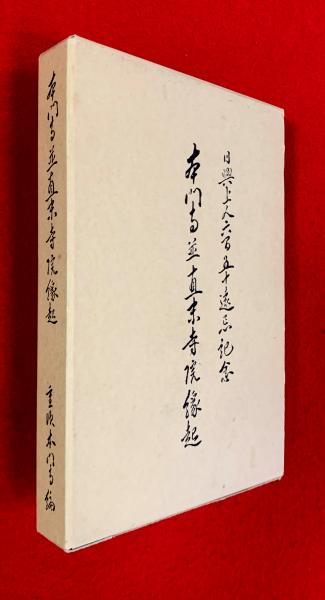 日興上人六百五十遠忌記念
本門寺並直末寺院縁起
本門寺並直末寺院縁起
重須本門寺編